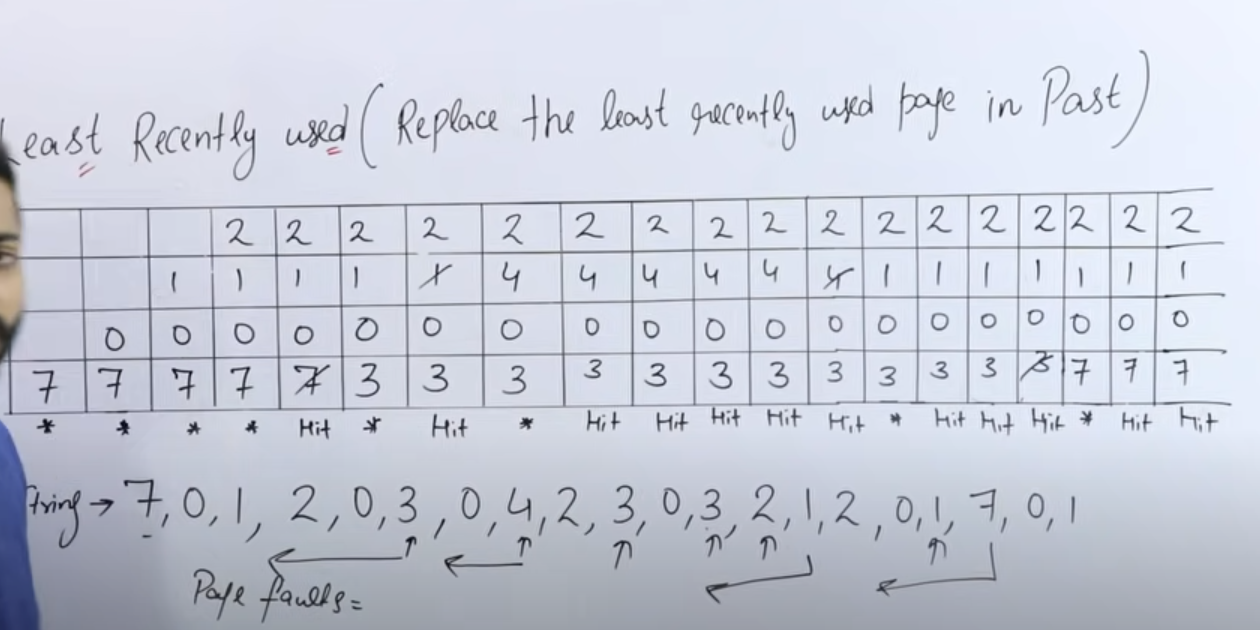 Least Recently used (Replace the least recently used page in Past)
2 2 2 2 2 2 2 2 2 2 2 2 2 2 2 2 2
1 1 1 1 1 4 4 4 4 4 4 1 1 1 1 1 1 1
0 0 0 0 0 0 0 0 0 0 0 0 0 0 0 0 0 0 0
7 7 7 7 7 3 3 3 3 3 3 3 3 3 3 3 3 7 7 7
* * * * Hit * Hit * Hit Hit Hit Hit Hit * Hit Hit Hit * Hit Hit
String → 7, 0, 1, 2, 0, 3, 0, 4, 2, 3, 0, 3, 2, 1, 2, 0, 1, 7, 0, 1
Page faults =